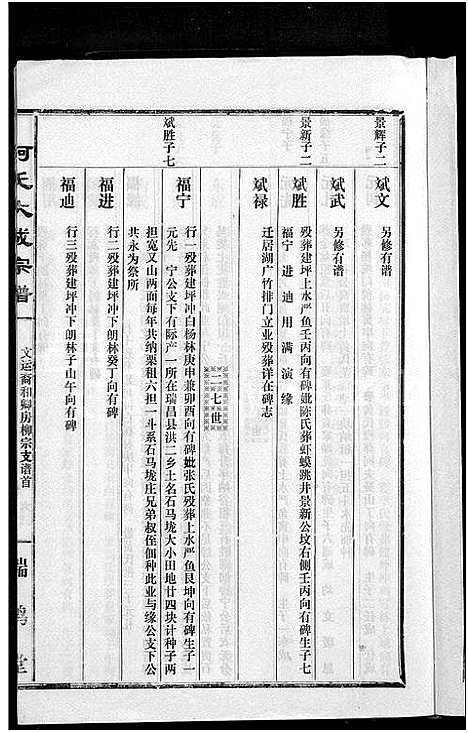 景辉子二
斌文
另修有谱
斌武
另修有谱
景新子二
斌胜
殁葬建坪上水严鱼壬丙向有碑妣陈氏葬虾蟆跳井景新公坟右侧壬丙向有碑生子七
福宁 进 迪 用 满 演 缘
斌禄
迁居湖广竹排门立业殁葬详在碑志
二七世
斌胜子七
福宁
行一殁葬建坪冲白杨林庚申兼卯酉向有碑妣张氏殁葬上水严鱼艮坤向有碑生子一
元先 宁公支下有际产一所在瑞昌县洪二乡土名石马垅大小田地廿四块计种子两
担宽又山两面每年共纳栗租六担一斗系石马垅庄兄弟叔侄佃种此业与缘公支下公
共永为祭所
福进
行二殁葬建坪冲下朗林癸丁向有碑
福迪
行三殁葬建坪冲下朗林子山午向有碑
何氏大成宗谱
文运裔和卿房柳宗支谱首
堂